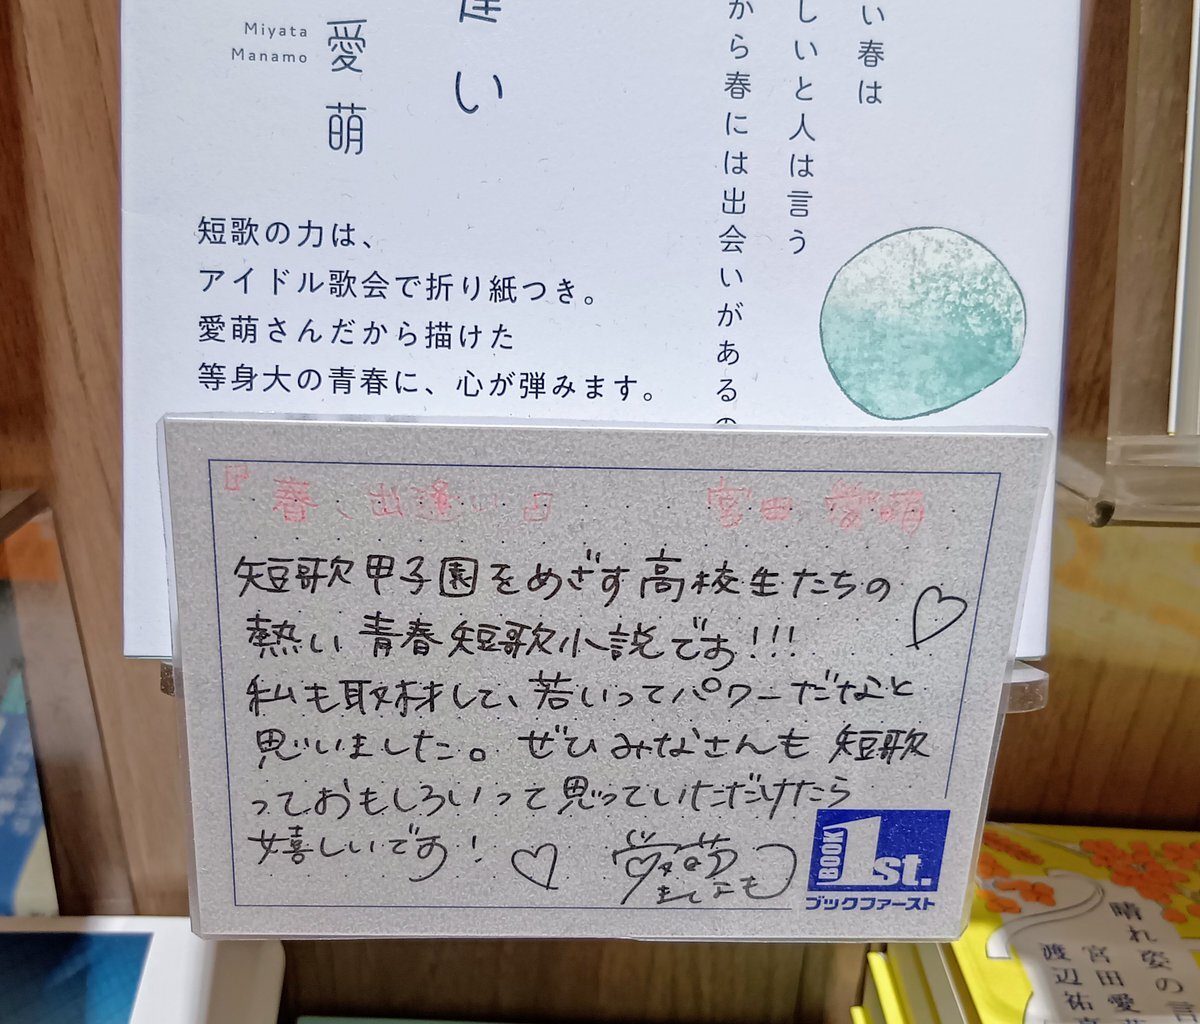 い春は
しいと人は言う
から春には出会いがあるの
逢い
愛萌
Miyata
Manamo
短歌の力は、
アイドル歌会で折り紙つき。
愛萌さんだから描けた
等身大の青春に、心が弾みます。
『春、出逢い』 宮田愛萌
短歌甲子園をめざす高校生たちの
熱い青春短歌小説です!!!
私も取材して、若いってパワーだなと
思いました。ぜひみなさんも短歌
っておもしろいって思っていただけたら
嬉しいです!
愛萌
まなも
BOOK 1st.
ブックファースト
晴れ姿の言
宮田愛萌
渡辺祐真